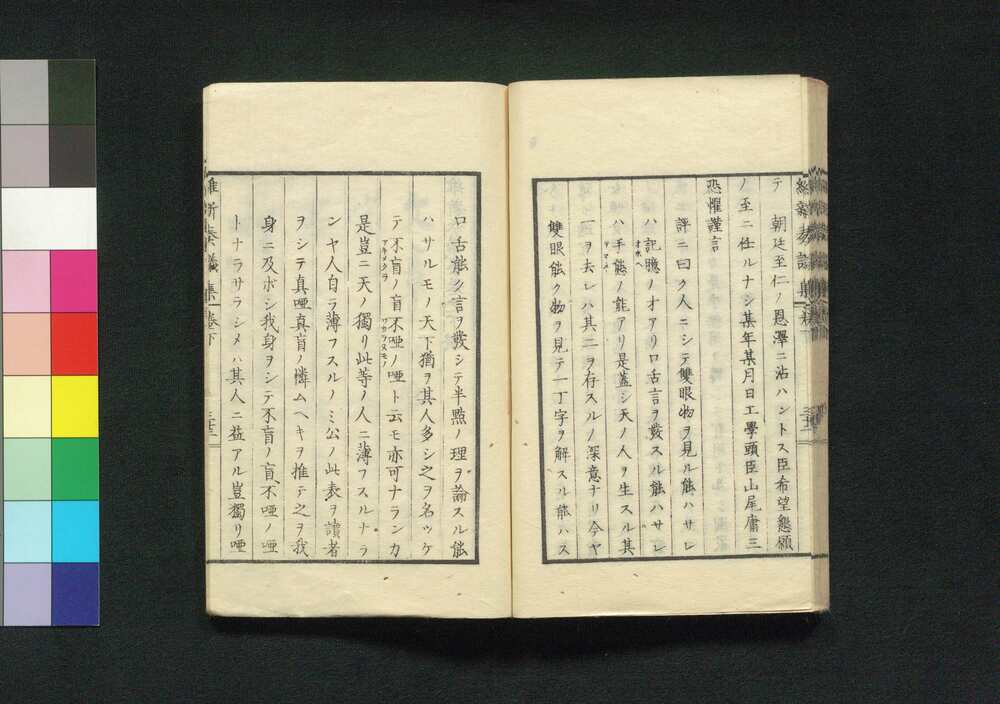 テ　朝廷至仁ノ恩澤ニ沾ハントス臣希望懇願
ノ至ニ任ルナシ某年某月日工學頭臣山尾庸三
恐懼謹言
評ニ曰ク人ニシテ雙眼物ヲ見ル能ハサレ
ハ記臆ノオアリ口舌言ヲ發スル能ハサレ
オボヘ
ハ手態ノ能アリ是蓋シ天ノ人ヲ生スル其
テマ子
一ヲ夫レハ其二ヲ存スルノ深意ナリ今ヤ
雙眼能ク物ヲ見テ一丁字ヲ解スル能ハス
口舌能ク言ヲ發シテ半點ノ理ヲ論スル能
ハサルモノ天下猶ヲ其人多シ之ヲ名ツケ
テ不盲ノ盲不唖ノ唖ト云モ亦可ナランカ
アキメクラ
ワカラヌモノ
是豈ニ天ノ獨リ此等ノ人ニ薄フスルナラ
ンヤ人自ラ薄フスルノミ公ノ此表ヲ讀者
ヲシテ真唖真盲ノ憐ムヘキヲ推テ之ヲ我
身ニ及ボシ我身ヲシテ不盲ノ盲不唖ノ唖
トナラサラシメハ其人ニ益アル豈獨リ唖
維新奏議集　卷下